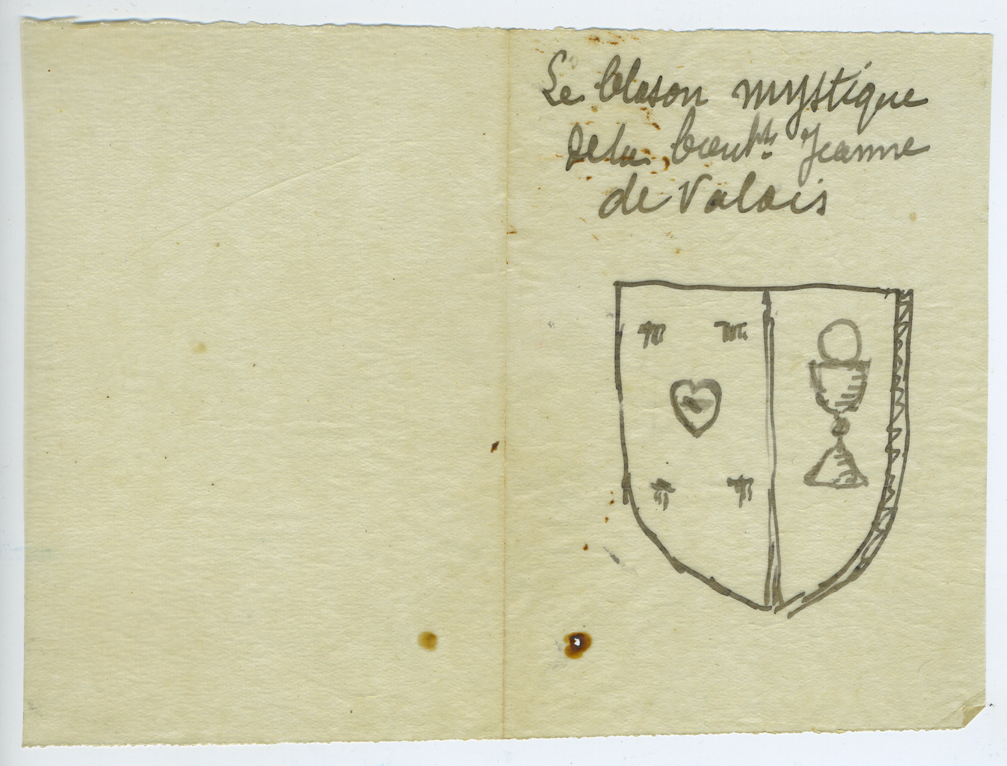 Le blason mystique
de la bienhte. Jeanne
de Valois